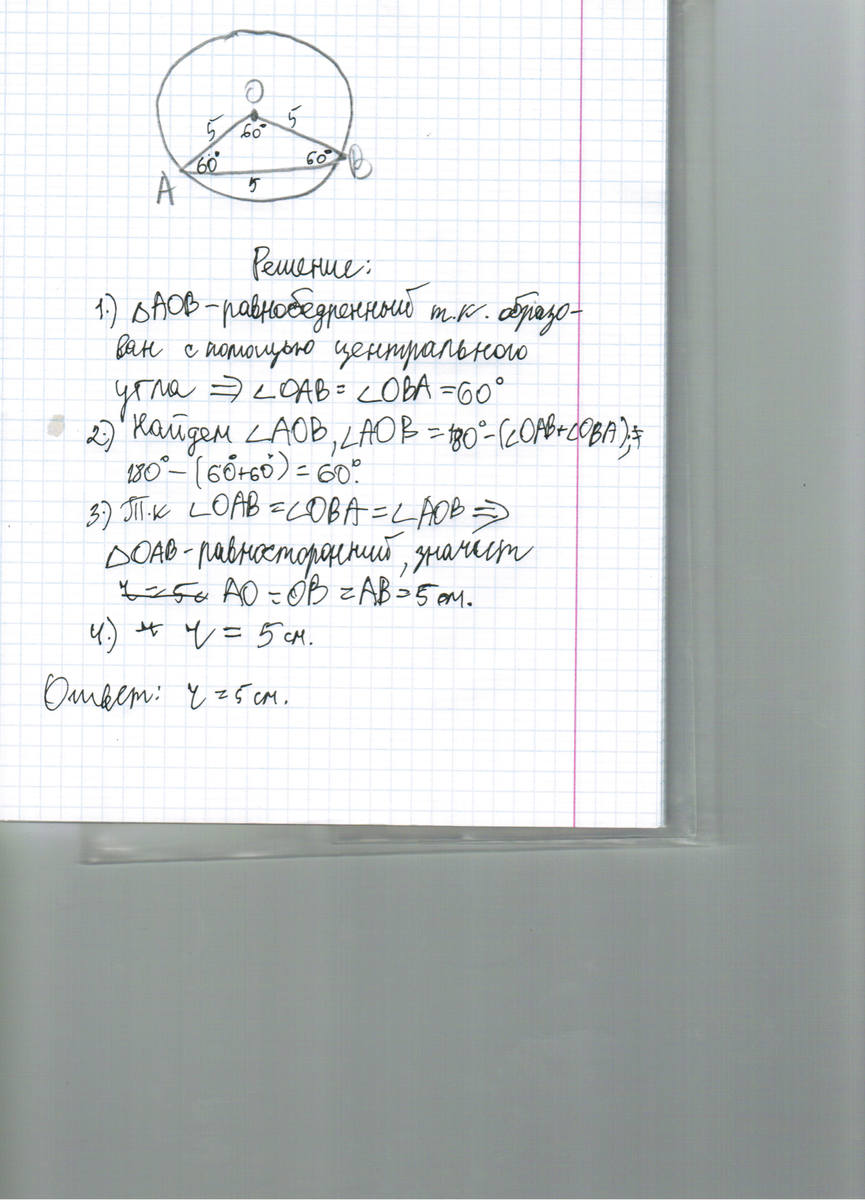 O
5 5
60°
60° 60°
A B
5
Решение:
1.) △AOB – равнобедренный т.к. образо-
ван с помощью центрального
угла ⇒ ∠OAB = ∠OBA = 60°
2.) Найдем ∠AOB, ∠AOB = 180° – (∠OAB+∠OBA);
180° – (60°+60°) = 60°.
3.) Т.к ∠OAB = ∠OBA = ∠AOB ⇒
△OAB – равносторонний, значит
r = 5 AO = OB = AB = 5 см.
4.) r = 5 см.
Ответ: r = 5 см.